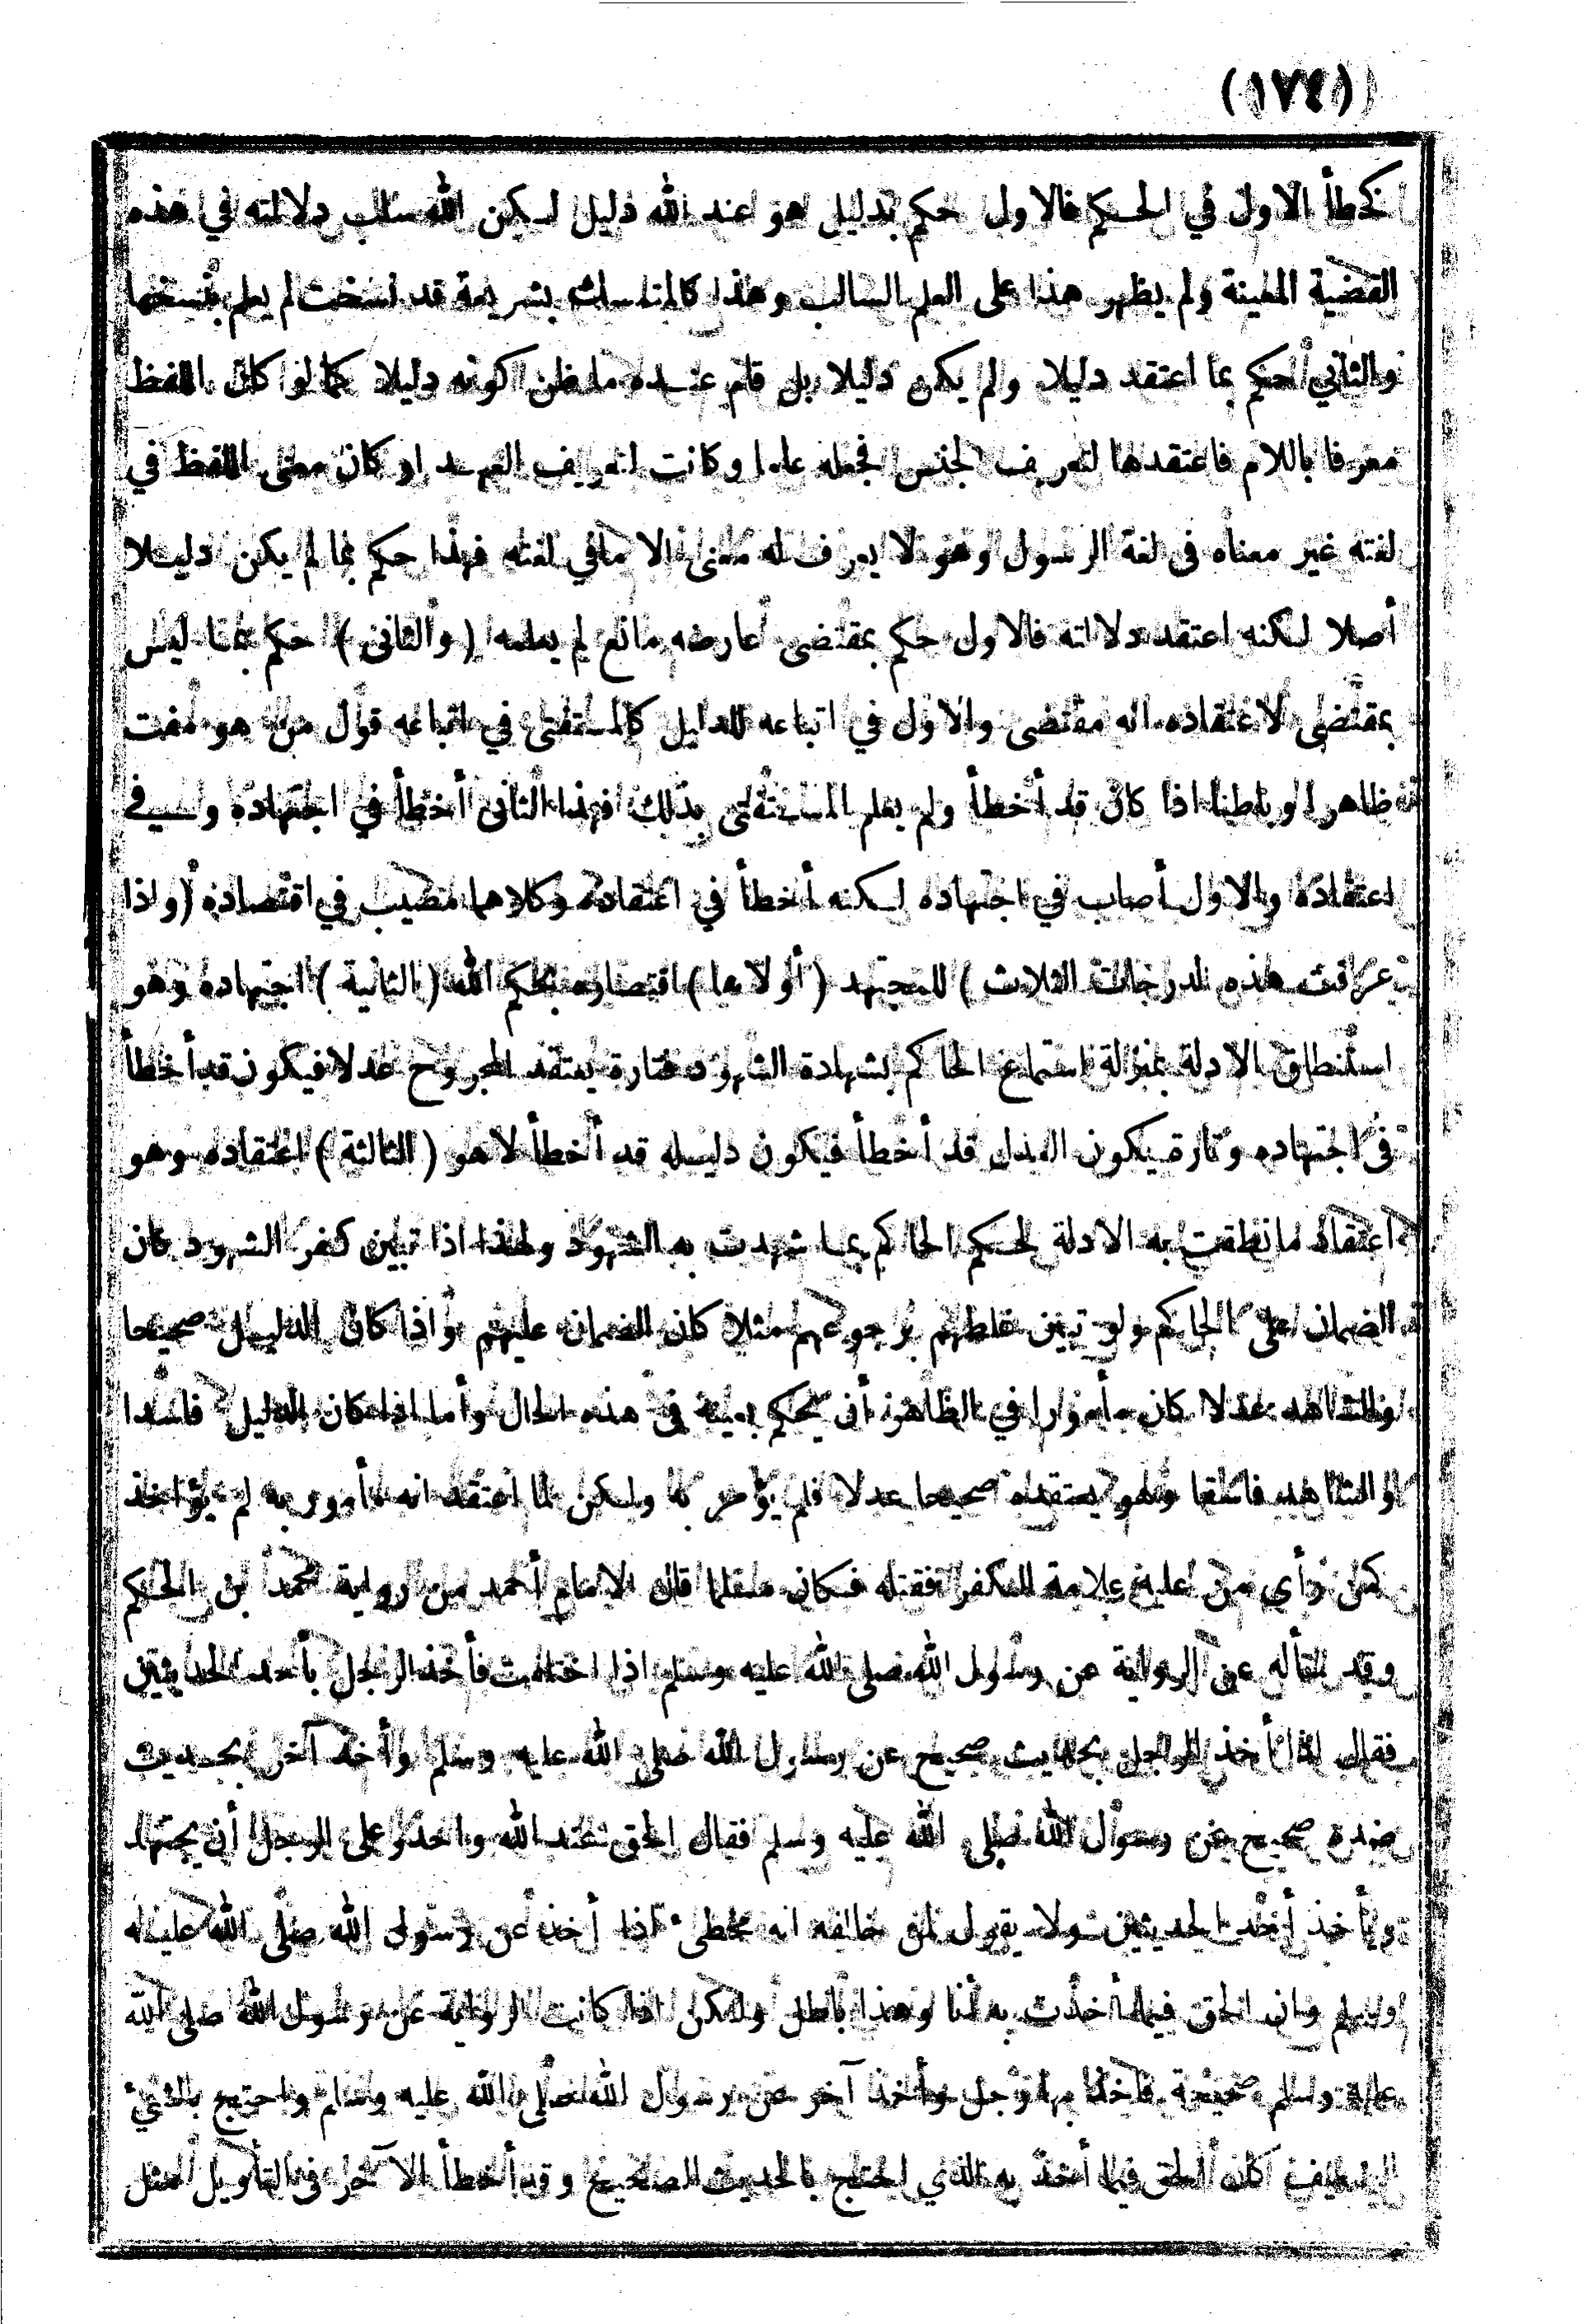 (١٧٤)
كخطأ الاول في الحكم فالاول حكم بدليل هو عند الله دليل لكن الله سلب دلالته في هذه
القضية المعينة ولم يظهر هذا على العلم السالب وهذا كالمتمسك بشريعة قد نسخت لم يعلم بنسخها
والثاني حكم بما اعتقد دليلا ولم يكن دليلا بل قام عنده ما ظن كونه دليلا كما لو كان اللفظ
معرفا باللام فاعتقدها لتعريف الجنس فجعله عاما وكانت لتعريف العهد او كان معنى اللفظ في
لغته غير معناه في لغة الرسول وهو لا يعرف له معنى الا ما في لغته فهذا حكم بما لم يكن دليلا
أصلا لكنه اعتقد دلالته فالاول حكم بمقتضى عارضه مانع لم يعلمه (والثاني) حكم بما ليس
بمقتضى لاعتقاده انه مقتضى والاول في اتباعه للدليل كالمستفتى في اتباعه قول من هو مفت
ظاهرا وباطنا اذا كان قد أخطأ ولم يعلم المستفتى بذلك فهذا الثاني أخطأ في اجتهاده وفي
اعتقاده والاول أصاب في اجتهاده لكنه أخطأ في اعتقاده وكلاهما مصيب في اقتصاده (واذا
عرفت هذه الدرجات الثلاث) للمجتهد (أولاها) اقتصاره بحكم الله (الثانية) اجتهاده وهو
استنطاق الادلة بمنزلة استماع الحاكم بشهادة الشهود فتارة يعتقد المجروح عدلا فيكون قد أخطأ
في اجتهاده وتارة يكون العدل قد أخطأ فيكون دليله قد أخطأ لا هو (الثالثة) اعتقاده وهو
اعتقاد ما نطقت به الادلة لحكم الحاكم بما شهدت به الشهود ولهذا اذا تبين كفر الشهود كان
الضمان على الحاكم ولو تبين غلطهم برجوعهم مثلا كان الضمان عليهم واذا كان الدليل صحيحا
والشاهد عدلا كان مأمورا في الظاهر أن يحكم بعينه في هذه الحال وأما اذا كان الدليل فاسدا
والشاهد فاسقا وهو يعتقده صحيحا عدلا فلم يؤمر به ولكن لما اعتقد انه مأمور به لم يؤاخذ
كمن رأى من عليه علامة الكفر فقتله فكان مسلما قال الامام أحمد من رواية محمد بن الحكم
وقد سأله عن الرواية عن رسول الله صلى الله عليه وسلم اذا اختلفت فأخذ الرجل بأحد الحديثين
فقال اذا أخذ الرجل بحديث صحيح عن رسول الله صلى الله عليه وسلم وأخذ آخر بحديث
ضده صحيح عن رسول الله صلى الله عليه وسلم فقال الحق عند الله واحد وعلى الرجل أن يجتهد
ويأخذ أحد الحديثين ولا يقول لمن خالفه انه مخطئ اذا أخذ عن رسول الله صلى الله عليه
وسلم وان الحق فيما أخذت به أنا وهذا باطل ولكن اذا كانت الرواية عن رسول الله صلى الله
عليه وسلم صحيحة فأخذ بها رجل وأخذ آخر عن رسول الله صلى الله عليه وسلم واحتج بالشيء
الضعيف كان الحق فيما أخذ به الذي احتج بالحديث الصحيح وقد أخطأ الآخر في التأويل مثل